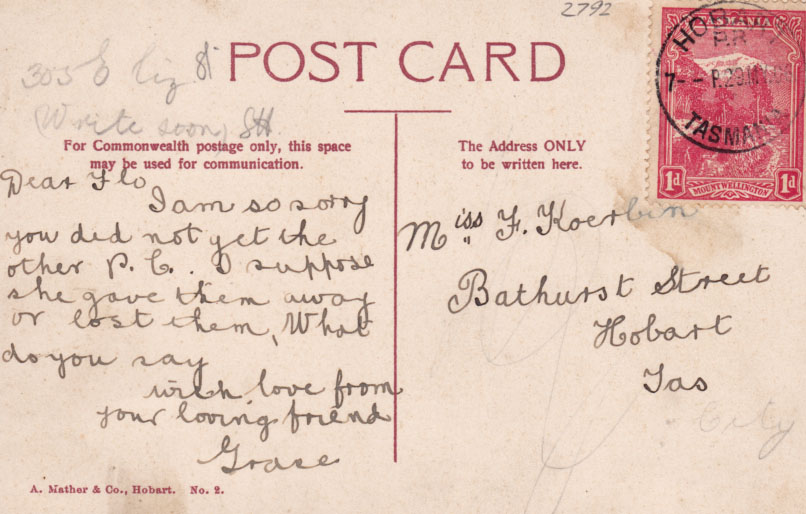 2792
POST CARD
305 Eliz St
Write soon, SH.
For Commonwealth postage only, this space
may be used for communication.
Dear Flo
I am so sorry
you did not get the
other P. C. . I suppose
she gave them away
or lost them, What
do you say
with love from
your loving friend
Grace
A. Mather & Co., Hobart. No. 2.
The Address ONLY
to be written here.
Miss F. Koerbin
Bathurst Street
Hobart
Tas
City
TASMANIA
1d
MOUNT WELLINGTON
1d
HOBART
TASMANIA